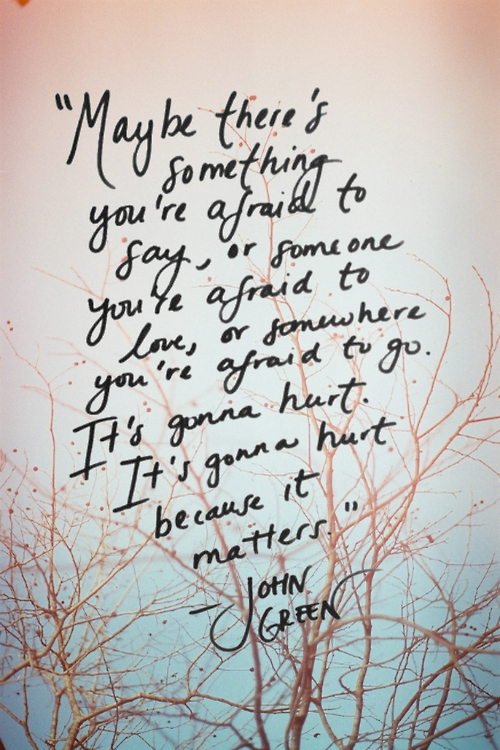 "Maybe there's
something
you're afraid to
say, or someone
you're afraid to
love, or somewhere
you're afraid to go.
It's gonna hurt.
It's gonna hurt
because it
matters."
- JOHN
GREEN